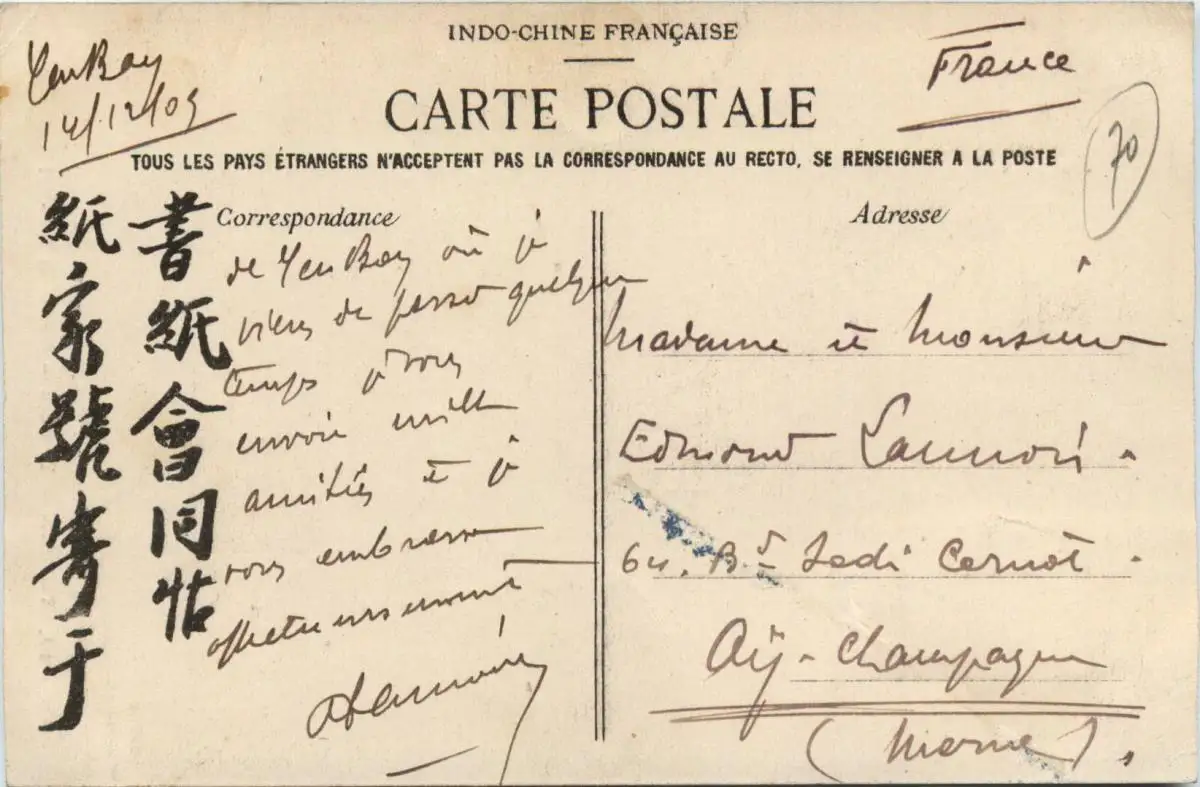 INDO-CHINE FRANÇAISE
CARTE POSTALE
TOUS LES PAYS ÉTRANGERS N'ACCEPTENT PAS LA CORRESPONDANCE AU RECTO, SE RENSEIGNER A LA POSTE
YenBay
14/12/09
France
70
書紙會同帖
紙家號寄于
Correspondance
de YenBay où je
viens de passer quelques
temps je vous
envoie mille
amitiés et je
vous embrasse
affectueusement
Adresse
Madame et Monsieur
Edmond
64. Bd Sadi Carnot.
Aÿ-Champagne
(Marne).